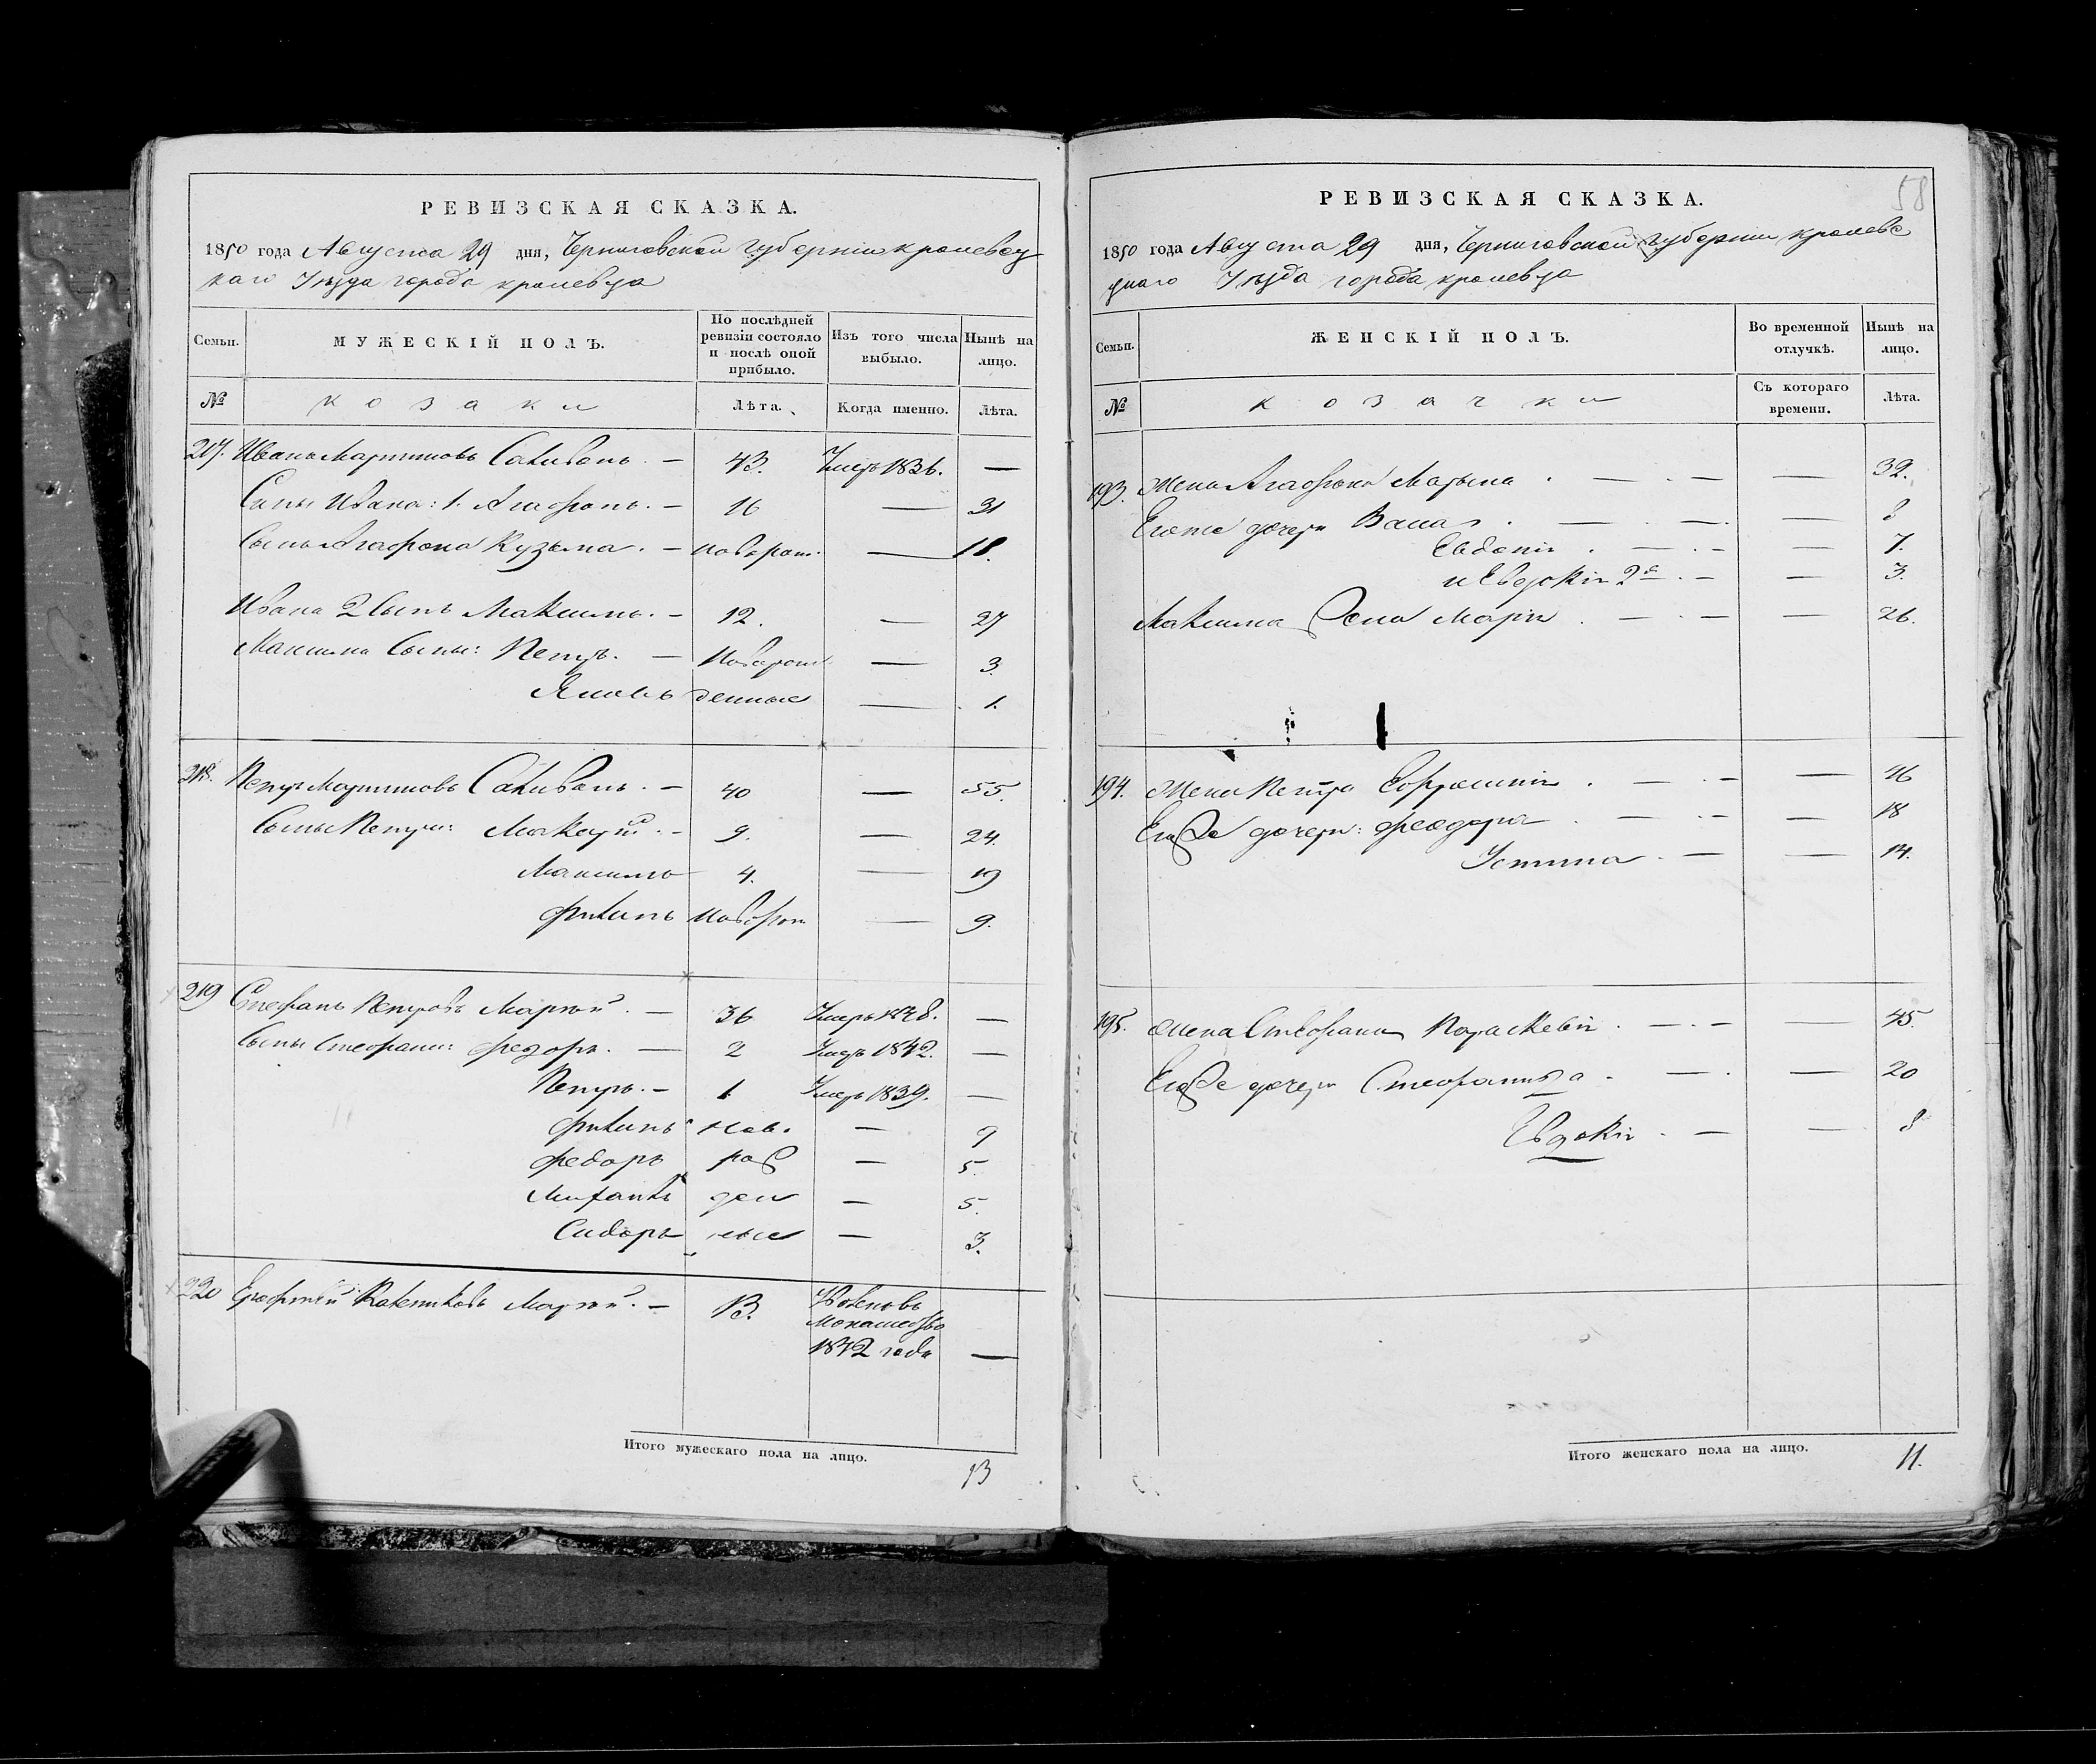 РЕВИЗСКАЯ СКАЗКА.
1850 года Августа 29 дня, Черниговской губернии кролевец
каго Уѣзда города кролевца
Семьи. МУЖЕСКІЙ ПОЛЪ. По послѣдней ревизіи состояло и послѣ оной прибыло. Изъ того числа выбыло. Нынѣ на лицо.
№ козаки Лѣта. Когда именно. Лѣта.
217. Иванъ Мартиновъ Саливонъ. — 43. Умеръ 1836. —
Сыны Ивана: 1. Агафонъ. — 16 — 31
Сынъ Агафона Кузьма. — новорож. — 18.
Ивана 2 Сынъ Максимъ. — 12. — 27
Максима Сыны: Петръ. — Новорож — 3.
Яковъ денные — 1.
218. Петръ Мартиновъ Саливонъ. — 40 — 55.
Сыны Петра: — 9. — 24.
Максимъ 4. — 19
Филипъ новорож — 9.
219 Стефанъ Петровъ 36 Умеръ 1848. —
Сыны Стефана: Федоръ. — 2 Умеръ 1842. —
Петръ. — 1 Умеръ 1839. —
Филипъ нов. — 9
Федоръ рож — 5.
Михаилъ ден — 5.
Сидоръ ные — 3.
220 — 13.
1842 года —
Итого мужескаго пола на лицо.
13
58
РЕВИЗСКАЯ СКАЗКА.
1850 года Августа 29 дня, Черниговской губернии кролеве
цкаго Уѣзда города кролевца
Семьи. ЖЕНСКІЙ ПОЛЪ. Во временной отлучкѣ. Нынѣ на лицо.
№ козачки Съ котораго времени. Лѣта.
193. Жена Агафона Марьяна . — . — — 32.
Егоже дочери . — . — . — 8
Евдокія . — . — — 7.
и Евдокія 2я . — — 3.
Максима Жена Марія . — . — — 26.
194. Жена Петра Ефросинія . — . — — 46
Егоже дочери: Феодора . — . — — 18
Устина . — — 14.
195. Жена Стефана Параскевія . — . — — 45.
Егоже дочери Стефанида . — . — 20
Евдокія . — — 8
Итого женскаго пола на лицо.
11.